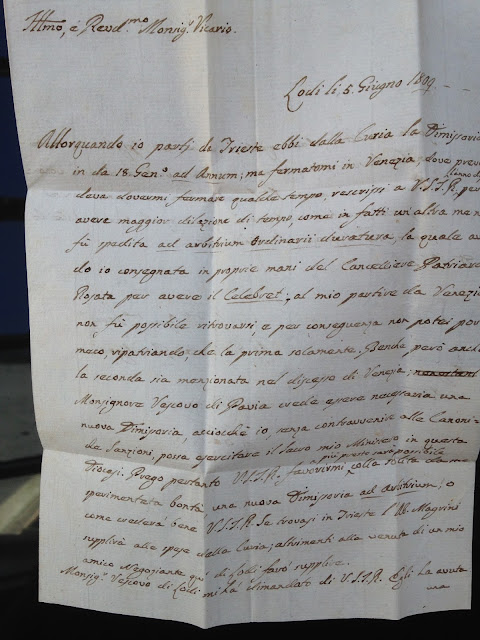 Illmo, è Revd.mo Monsig.r Vicario.
Lodi li 5. Giugno 1809.
Allorquando io partj da Trieste ebbi dalla Curia la Dimissoria
in da 18. Gen.o ad Annum; ma fermatomi in Venezia, dove preve
deva dovermi fermare qualche tempo, rescrissi a V.S.I.R. per
avere maggior dilazione di tempo, come in fatti un altra me n
fù spedita ad arbitrium Ordinarii duratura, la quale av
do io consegnata in proprie mani del Cancelliere Patriarc
Rosata per avere il Celebret, al mio partire da Venezia
non fù possibile ritrovarsi e per conseguenza non potei por
meco, ripatriando, che la prima solamente. Benche però anche
la seconda sia menzionata nel discesso di Venezia;
Monsignore Vescovo di Pavia crede essere necessaria una
nuova Dimissoria, acciocchè io, senza contravvenire alle Canoni-
che Sanzioni, possa esercitare il Sacro mio Ministero in questa
Diocesi. Prego pertanto V.S.I.R. favorirmi più presto sarà possibile colla solita
sperimentata bontà una nuova Dimissoria ad Arbitrium, o
come crederà bene V.S.I.R. Se trovasi in Trieste l' Ab. Magrini
supplirà alle spese della Curia; altrimenti alla venuta di un mio
amico Negoziante qui di Lodi farò supplire.
Monsig.r Vescovo di Lodi mi hà dimandato di V.S.I.R. Egli la avuta
una